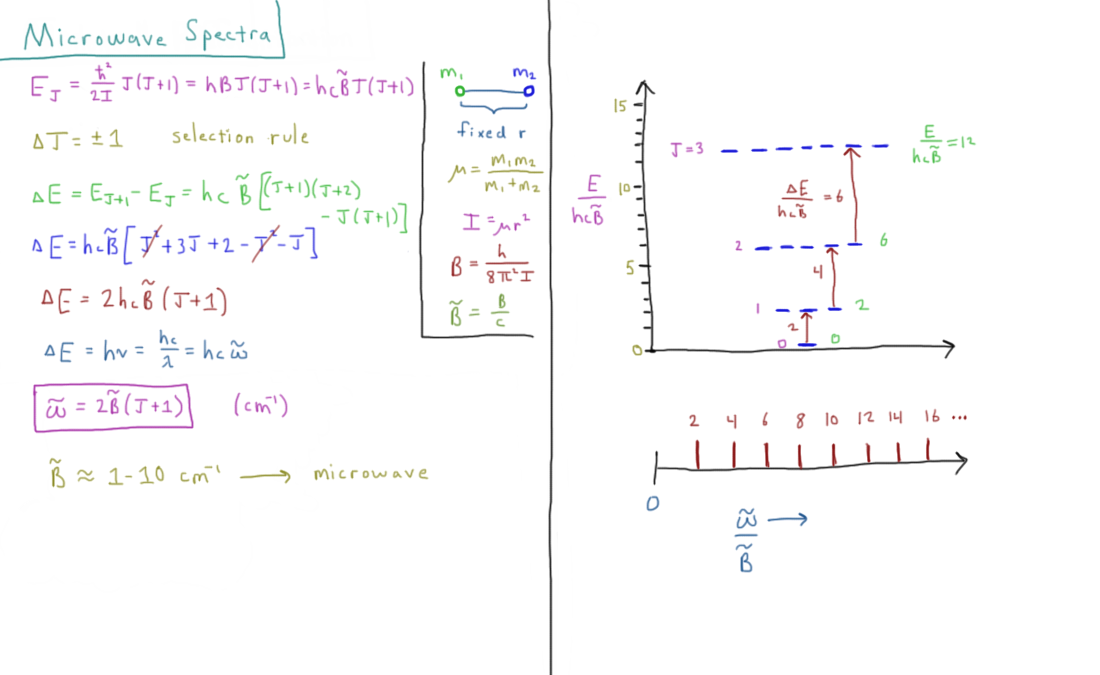 Microwave Spectra
E_J = ħ²/2I J(J+1) = hBJ(J+1) = hcB̃J(J+1)
ΔJ = ±1 selection rule
ΔE = E_J+1 - E_J = hc B̃ [(J+1)(J+2)
- J(J+1)]
ΔE = hcB̃ [J² + 3J + 2 - J² - J]
ΔE = 2hcB̃ (J+1)
ΔE = hν = hc/λ = hc ω̃
ω̃ = 2B̃(J+1) (cm⁻¹)
B̃ ≈ 1-10 cm⁻¹ → microwave
m₁ m₂
fixed r
μ = m₁m₂/m₁+m₂
I = μr²
B = h/8π²I
B̃ = B/c
E/hcB̃
15
10
5
0
J=3 E/hcB̃ = 12
ΔE/hcB̃ = 6
2 6
4
1 2
2
0 0
2 4 6 8 10 12 14 16 ...
0
ω̃/B̃ →